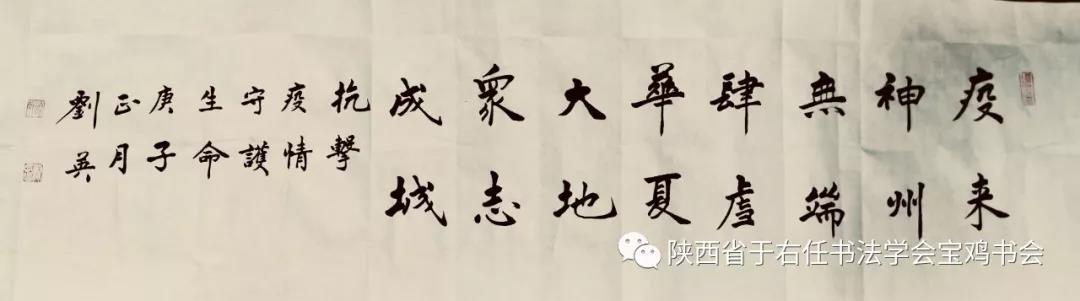 疫来
神州
無端
肆虐
華夏
大地
衆志
成城
抗擊
疫情
守護
生命
庚子
正月
劉英
陕西省于右任书法学会宝鸡书会